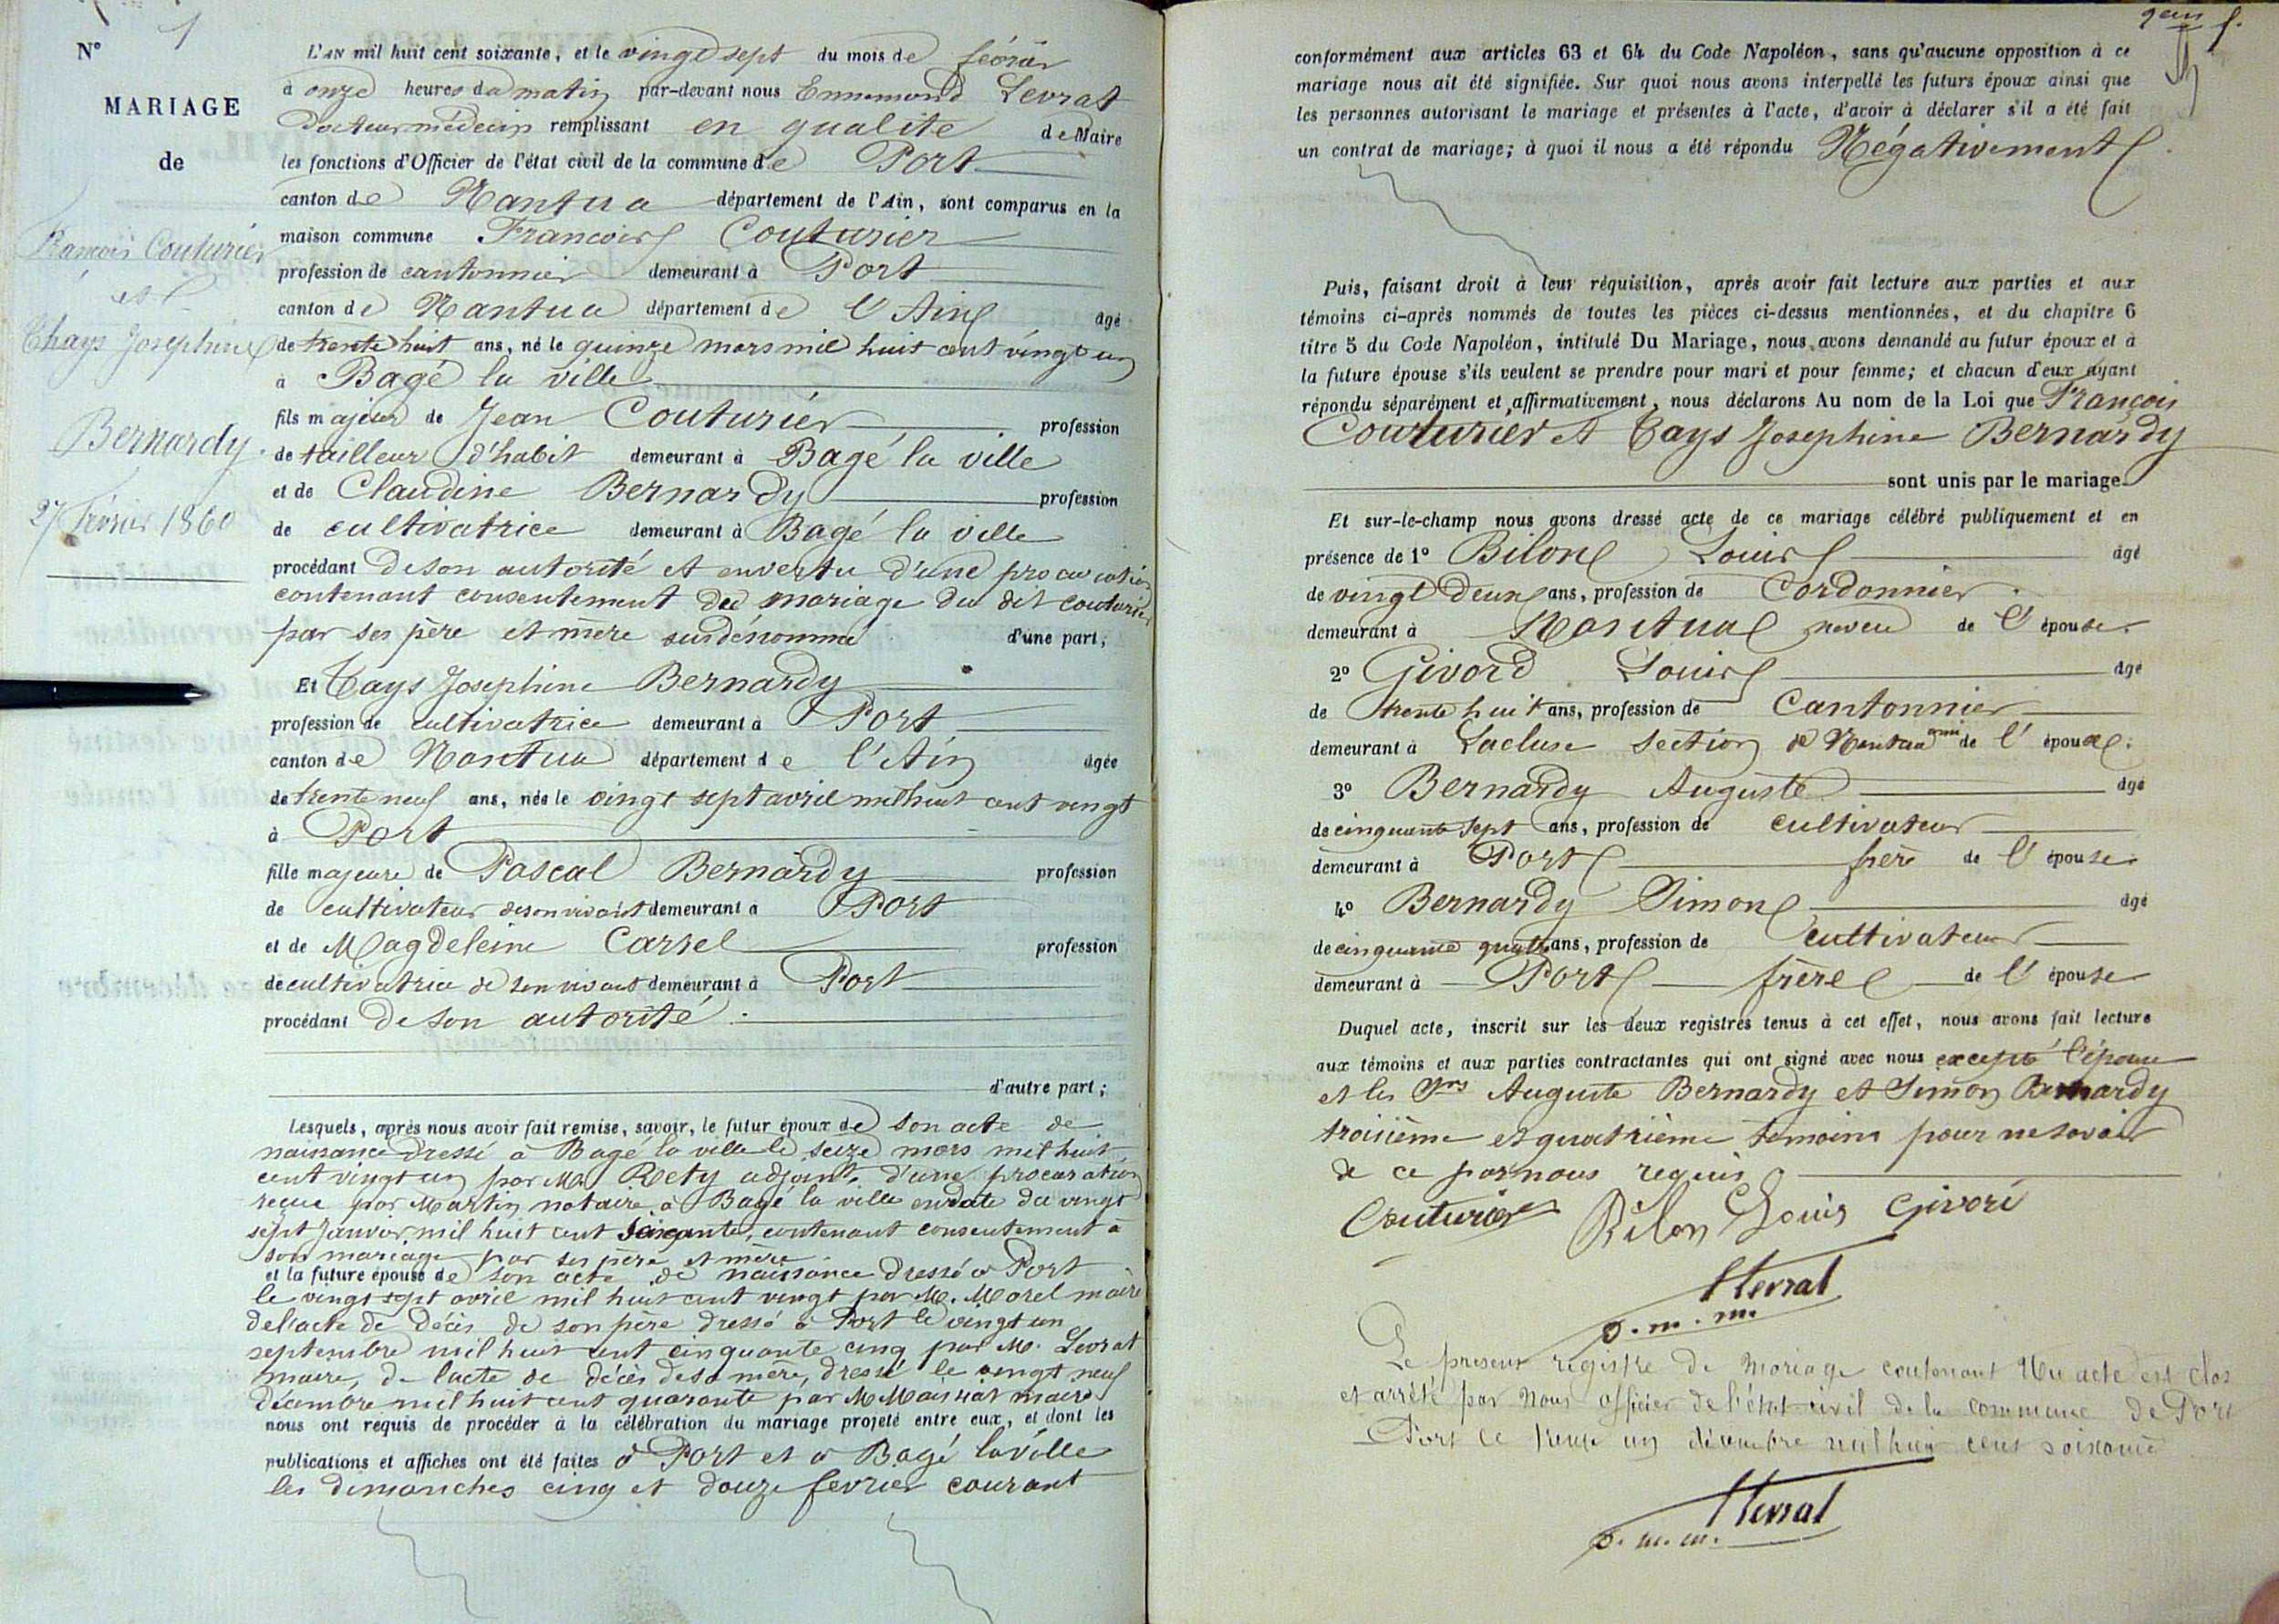 N° 1
MARIAGE
de
François Couturier
et
Thays Joséphine
Bernardy.
27 Février 1860
L'AN mil huit cent soixante, et le vingt sept du mois de février
à onze heures du matin par-devant nous Ennemond Levrat
Docteur médecin remplissant en qualité de Maire
les fonctions d'Officier de l'état civil de la commune de Port
canton de Nantua département de l'Ain, sont comparus en la
maison commune François Couturier
profession de cantonnier demeurant à Port
canton de Nantua département de l'Ain agé
de trente huit ans, né le quinze mars mil huit cent vingt un
à Bagé la ville
fils majeur de Jean Couturier profession
de tailleur d'habit demeurant à Bagé la ville
et de Claudine Bernardy profession
de cultivatrice demeurant à Bagé la ville
procédant de son autorité et en vertu d'une procuration
contenant consentement du mariage du dit couturier
par ses père et mère susdénommé d'une part;
Et Tays Josephine Bernardy
profession de cultivatrice demeurant à Port
canton de Nantua département de l'Ain agée
de trente neuf ans, née le vingt sept avril mil huit cent vingt
à Port
fille majeure de Pascal Bernardy profession
de cultivateur de son vivant demeurant à Port
et de Magdeleine Carrel profession
de cultivatrice de son vivant demeurant à Port
procédant de son autorité
d'autre part;
Lesquels, après nous avoir fait remise, savoir, le futur époux de son acte de
naissance dressé à Bagé la ville le seize mars mil huit
cent vingt un par Mr Rety adjoint, d'une procuration
recue par Martin notaire à Bagé la ville en date du vingt
sept janvier mil huit cent soixante, contenant consentement à
son mariage par ses père et mère
et la future épouse de son acte de naissance dressé à Port
le vingt sept avril mil huit cent vingt par M. Morel maire
de l'acte de décès de son père dressé à Port le vingt un
septembre mil huit cent cinquante cinq par M. Levrat
maire, de l'acte de décès de sa mère, dressé le vingt neuf
décembre mil huit cent quarante par M maire
nous ont requis de procéder à la célébration du mariage projeté entre eux, et dont les
publications et affiches ont été faites à Port et à Bagé la ville
les dimanches cinq et douze fevrier courant
conformément aux articles 63 et 64 du Code Napoléon, sans qu'aucune opposition à ce
mariage nous ait été signifiée. Sur quoi nous avons interpellé les futurs époux ainsi que
les personnes autorisant le mariage et présentes à l'acte, d'avoir à déclarer s'il a été fait
un contrat de mariage; à quoi il nous a été répondu Négativement
Puis, faisant droit à leur réquisition, après avoir fait lecture aux parties et aux
témoins ci-après nommés de toutes les pièces ci-dessus mentionnées, et du chapitre 6
titre 5 du Code Napoléon, intitulé Du Mariage, nous avons demandé au futur époux et à
la future épouse s'ils veulent se prendre pour mari et pour femme; et chacun d'eux ayant
répondu séparément et affirmativement, nous déclarons Au nom de la Loi que François
Couturier et Tays Josephine Bernardy
sont unis par le mariage.
Et sur-le-champ nous avons dressé acte de ce mariage célébré publiquement et en
présence de 1° Bilon Louis agé
de vingt deux ans, profession de Cordonnier
demeurant à Nantua neveu de l'épouse
2° Givord Louis agé
de trente huit ans, profession de Cantonnier
demeurant à Lacluse section de Nantua ami de l'époux
3° Bernardy Auguste agé
de cinquante sept ans, profession de cultivateur
demeurant à Port frère de l'épouse
4° Bernardy Simon agé
de cinquante quatre ans, profession de cultivateur
demeurant à Port frère de l'épouse
Duquel acte, inscrit sur les deux registres tenus à cet effet, nous avons fait lecture
aux témoins et aux parties contractantes qui ont signé avec nous excepté l'épouse
et les Srs Auguste Bernardy et Simon Bernardy
troisième et quatrième témoins pour ne savoir
de ce par nous requis
Couturier Bilon Louis Givord
Levrat
d. m. m.
Le present registre de mariage contenant Un acte est clos
et arrêté par nous officier de l'état civil de la commune de Port
Port le trente un décembre mil huit cent soixante
Levrat
d. m. m.